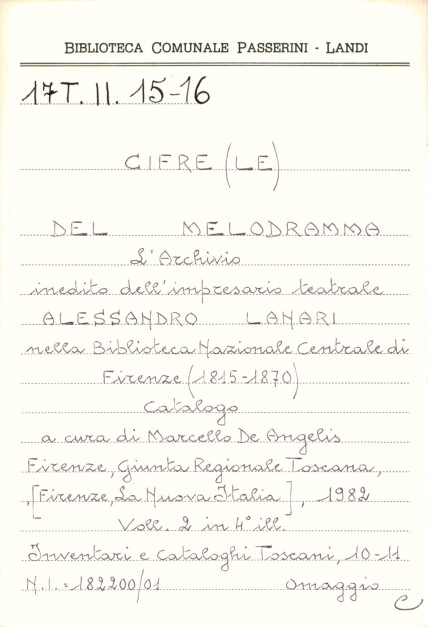 BIBLIOTECA COMUNALE PASSERINI - LANDI
17T. II. 15-16
CIFRE (LE)
DEL MELODRAMMA
L'Archivio
inedito dell'impresario teatrale
ALESSANDRO LANARI
nella Biblioteca Nazionale Centrale di
Firenze (1815-1870)
Catalogo
a cura di Marcello De Angelis
Firenze, Giunta Regionale Toscana,
,[Firenze, La Nuova Italia], 1982
Voll. 2 in 4° ill.
Inventari e Cataloghi Toscani, 10-11
N.I. = 182200/01 Omaggio
C